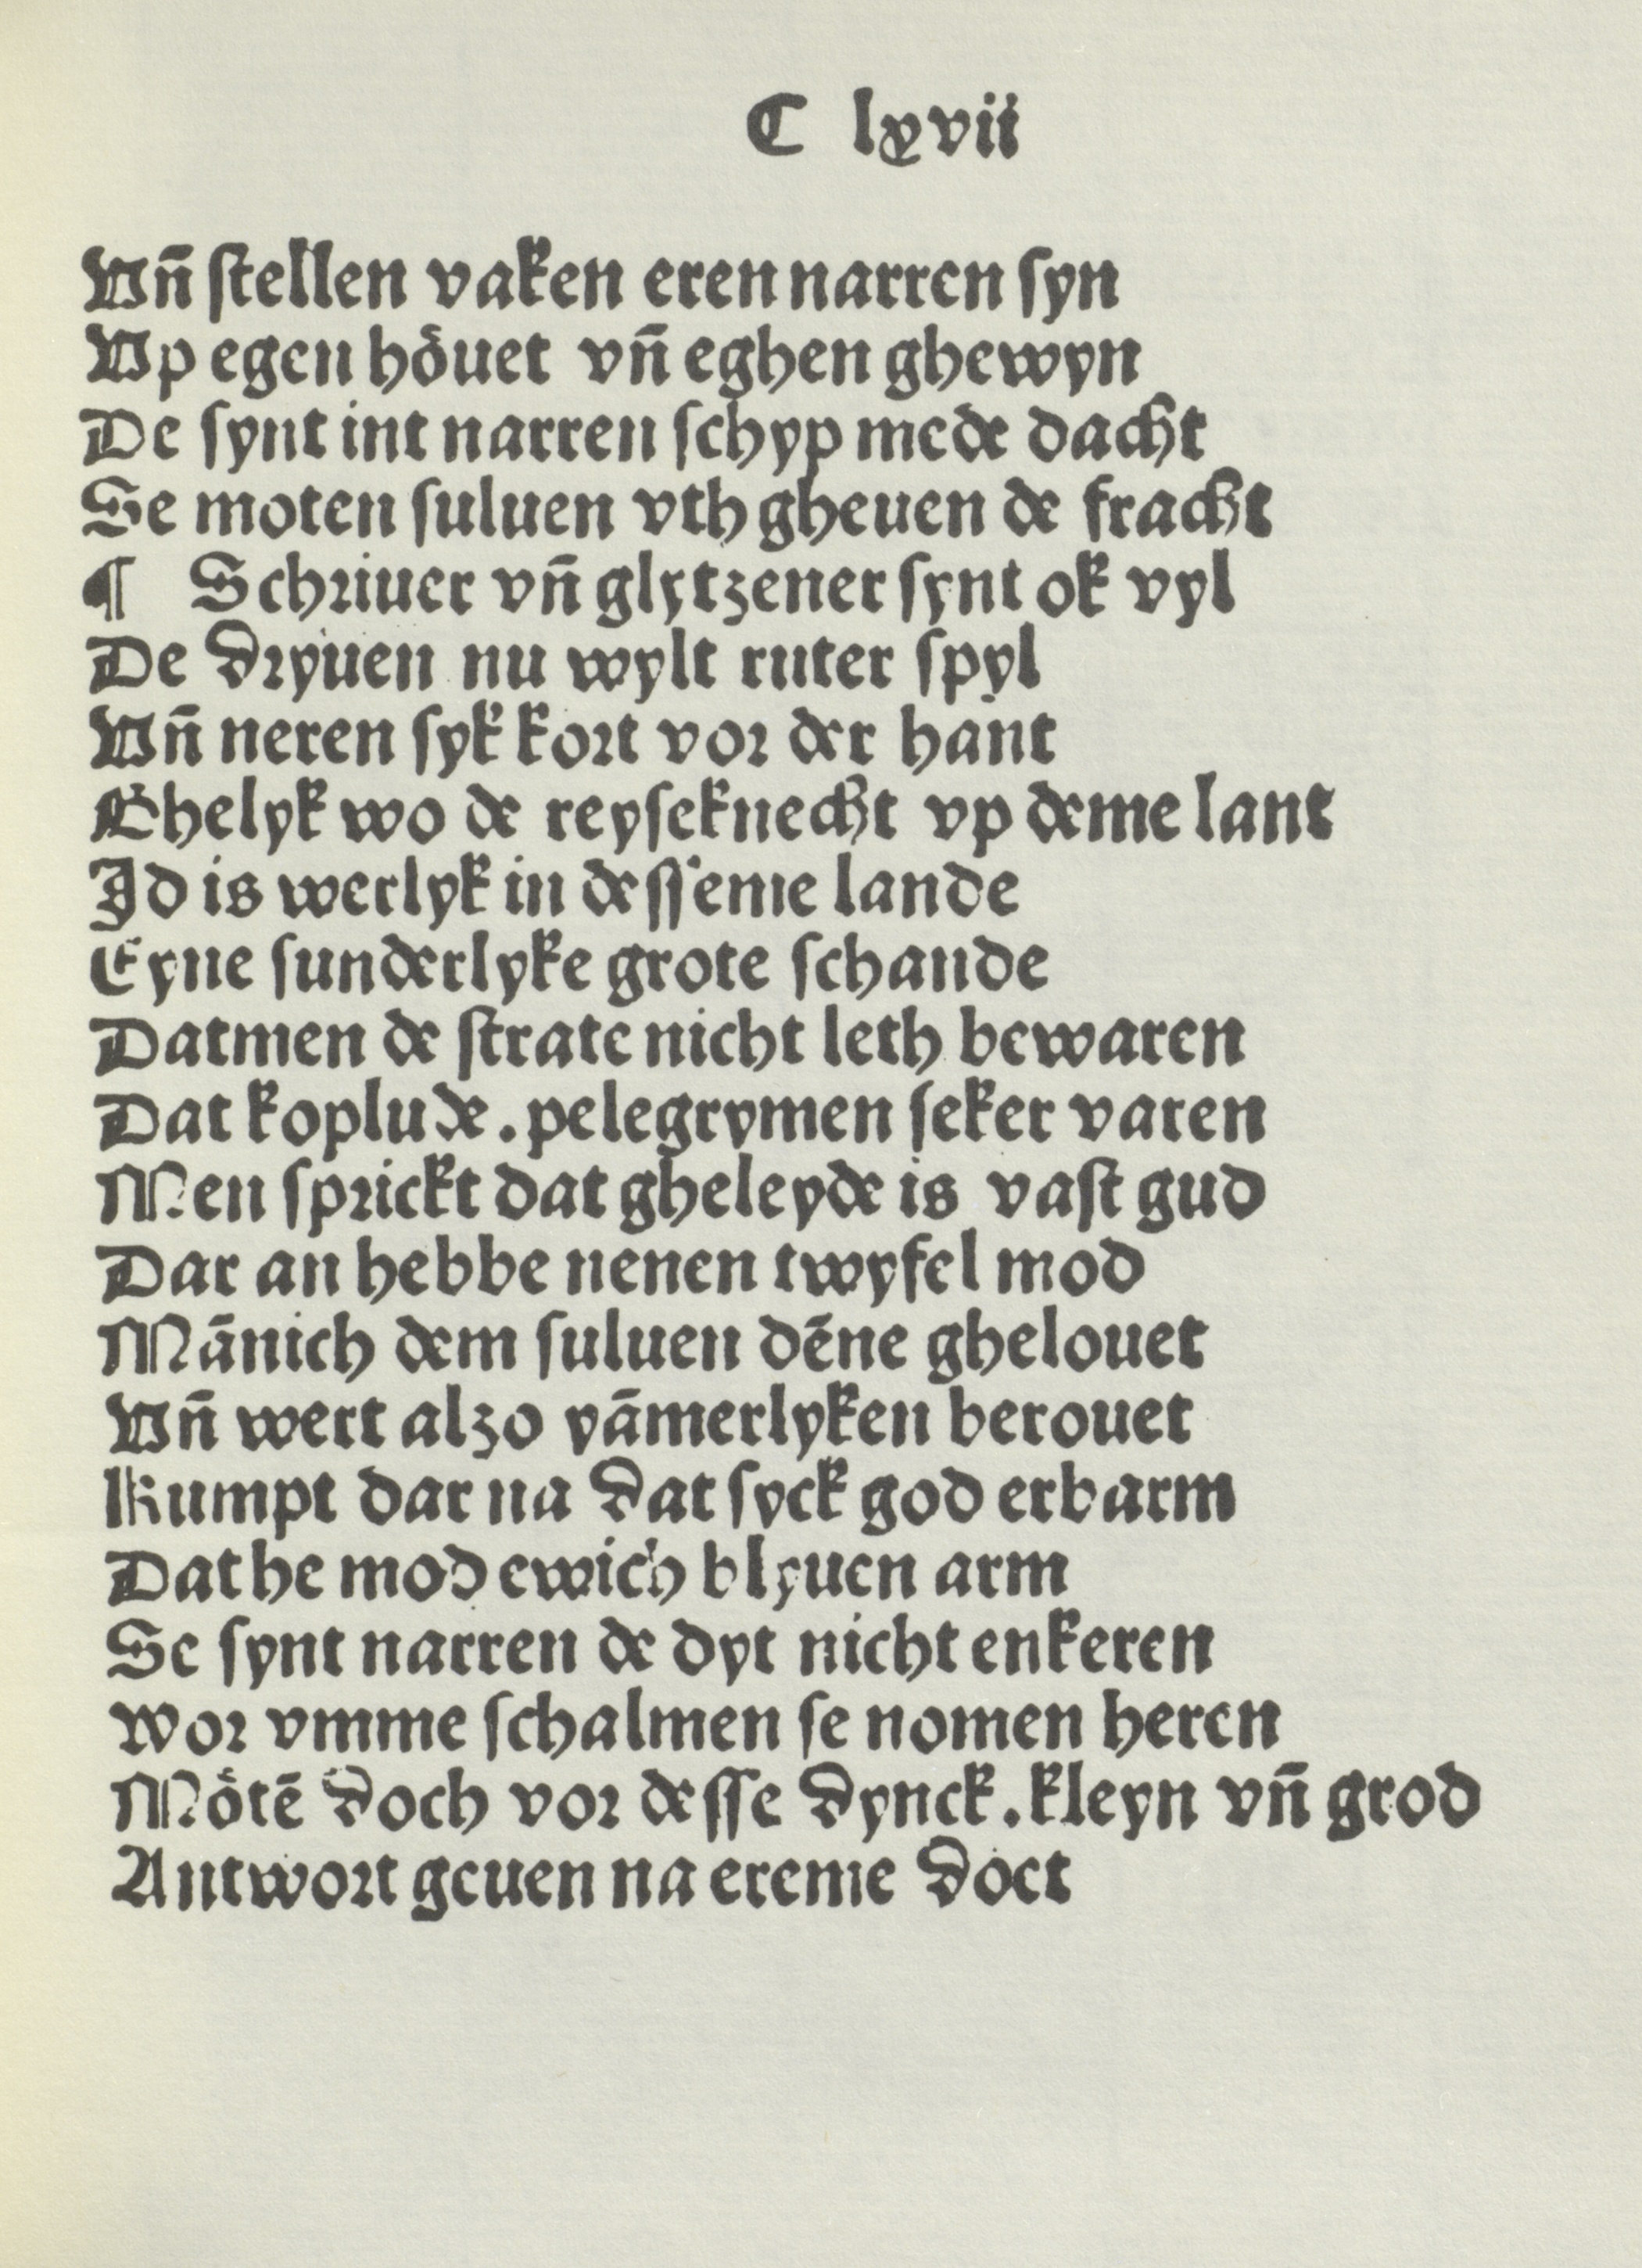 C lxvii
Vn̄ ſtellen vaken eren narren ſyn
Vp egen hoͤuet vn̄ eghen ghewyn
De ſynt int narren ſchyp mede dacht
Se moten ſuluen vth gheuen de fracht
¶ Schꝛiuer vn̄ glytzener ſynt ok vyl
De dꝛyuen nu wylt ruter ſpyl
Vn̄ neren ſyk koꝛt voꝛ der hant
Ghelyk wo de reyſeknecht vp deme lant
Id is werlyk in deſſeme lande
Eyne ſunderlyke grote ſchande
Datmen de ſtrate nicht leth bewaren
Dat koplude. pelegrymen ſeker varen
Men ſpꝛickt dat gheleyde is vaſt gud
Dar an hebbe nenen twyfel mod
Mānich dem ſuluen dēne ghelouet
Vn̄ wert alzo yāmerlyken berouet
Kumpt dar na dat ſyck god erbarm
Dat he mod ewich blyuen arm
Se ſynt narren de dyt nicht enkeren
Woꝛ vmme ſchalmen ſe nomen heren
Moͤtē doch voꝛ deſſe dynck. kleyn vn̄ grod
Antwoꝛt geuen na ereme doet